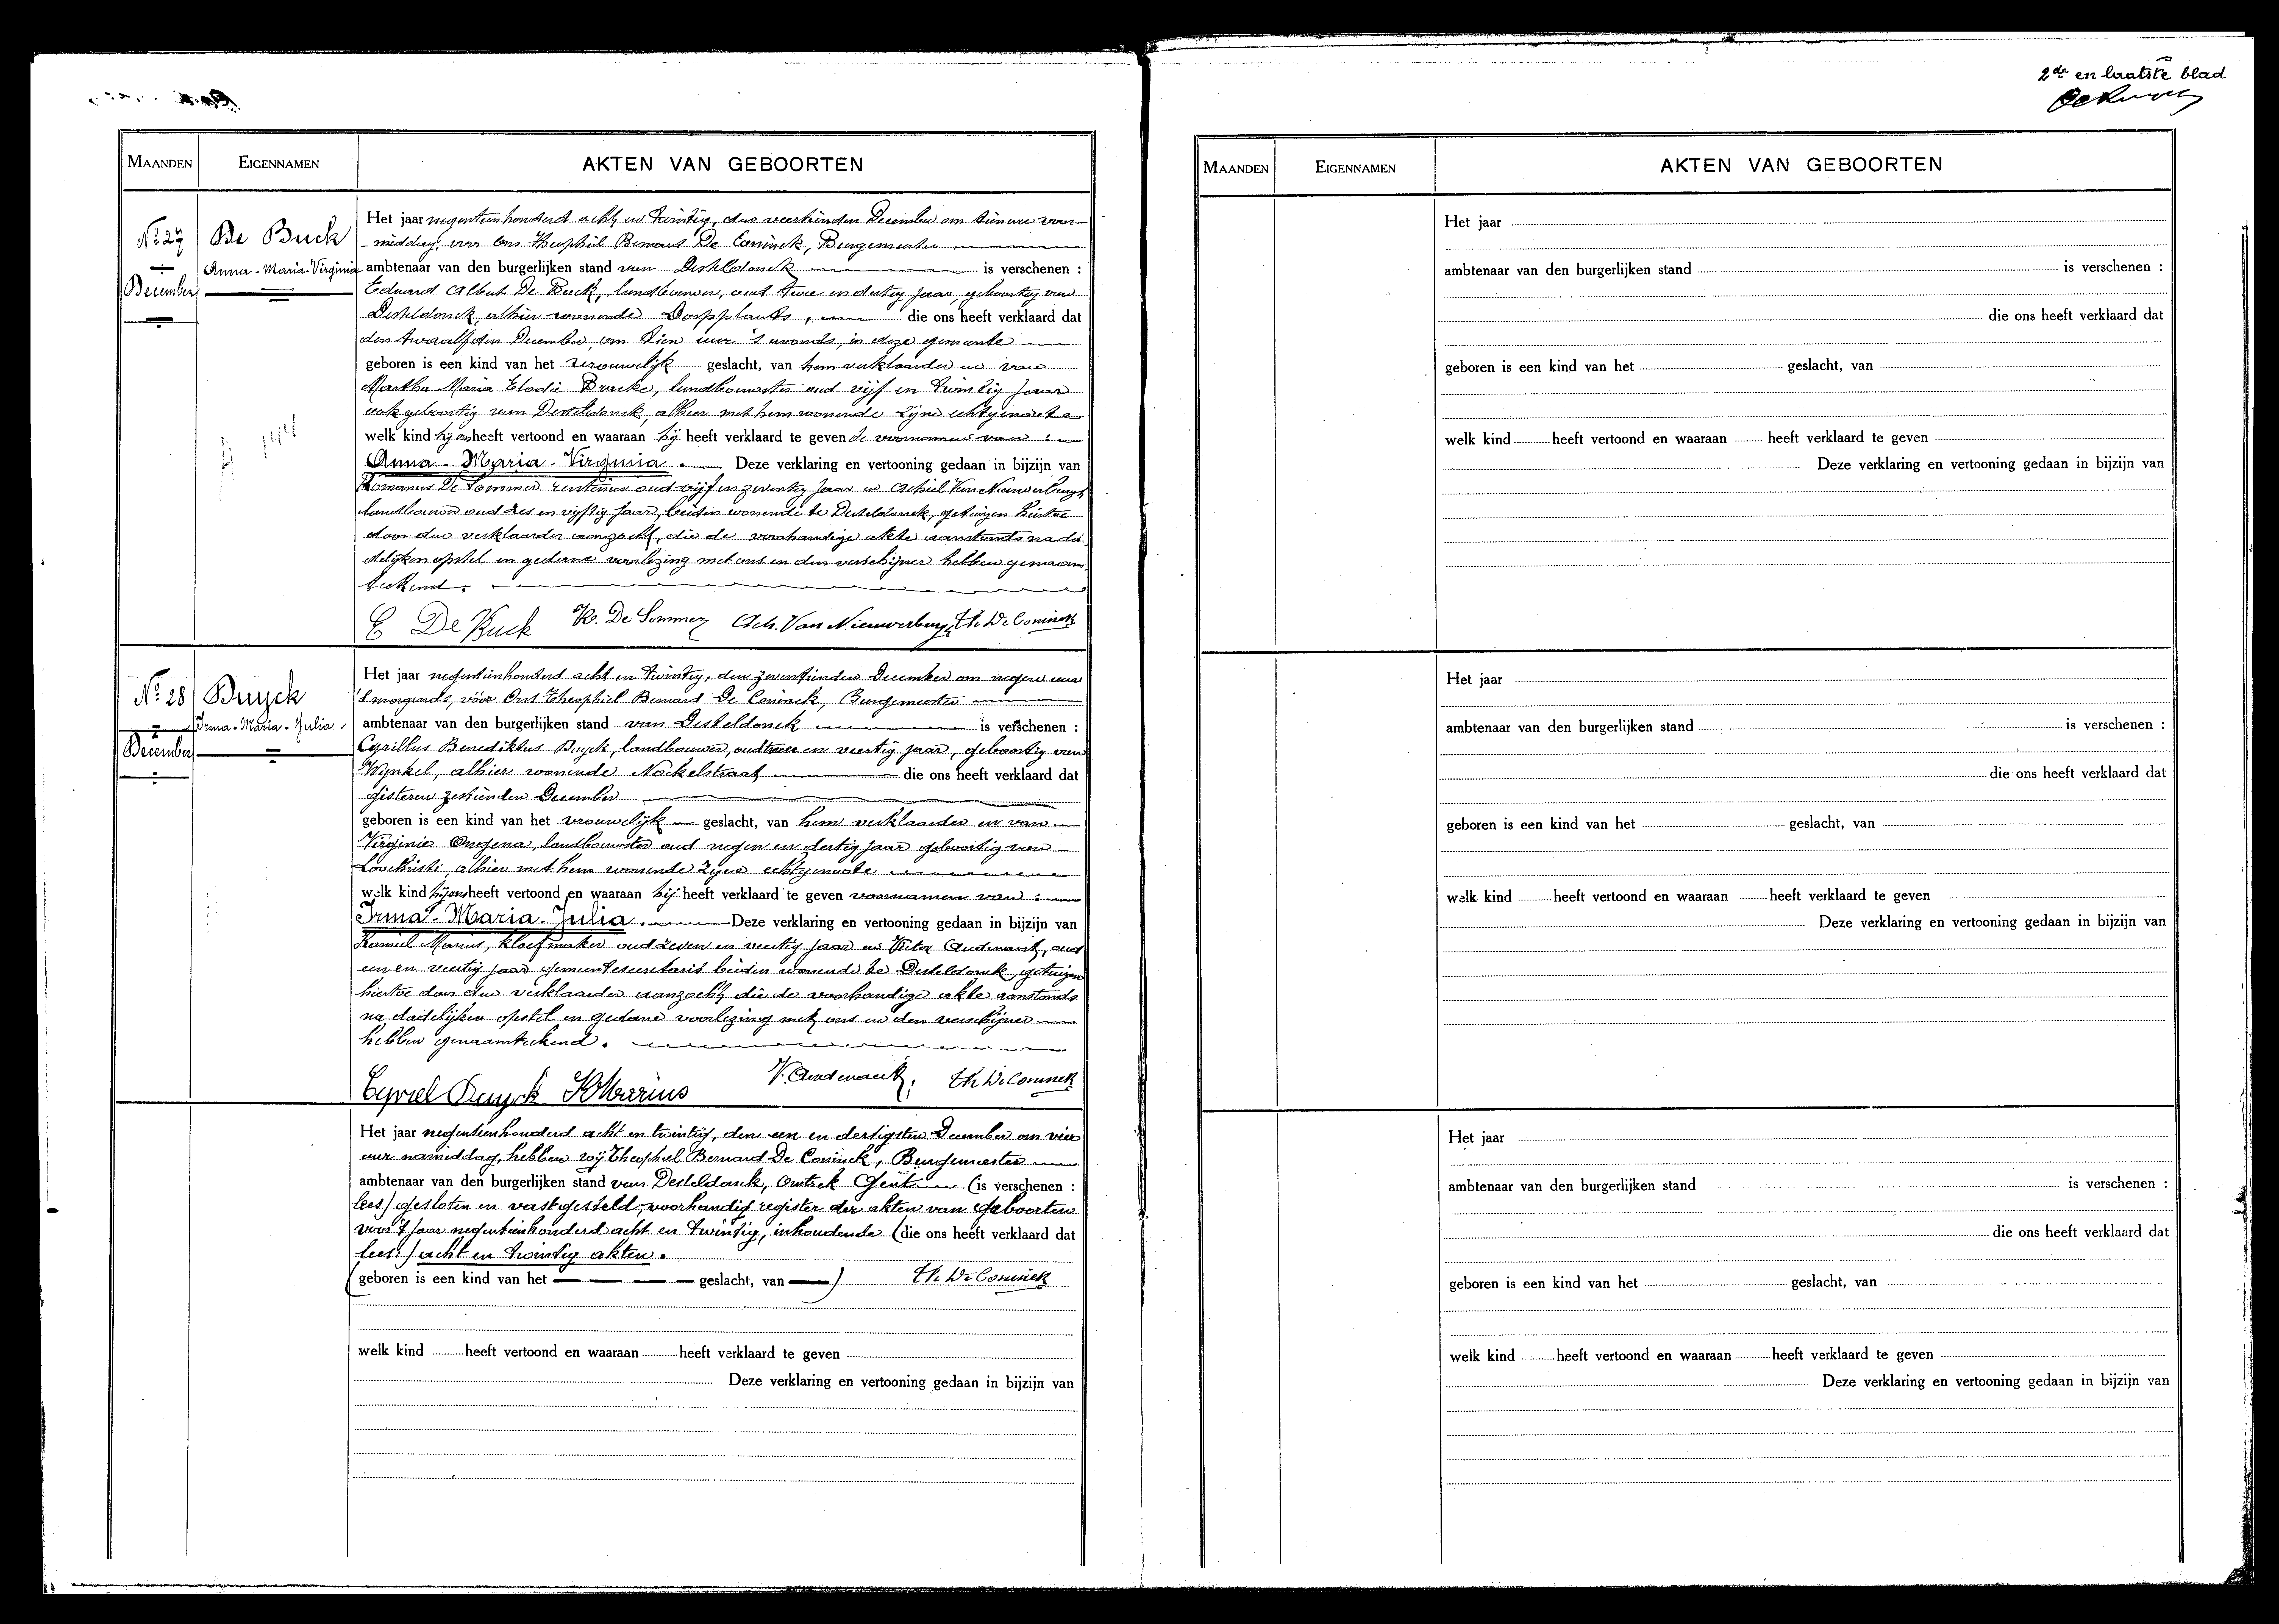 2de en laatste blad
MAANDEN
EIGENNAMEN
AKTEN VAN GEBOORTEN
No 27
December
De Buck
Anna-Maria-Virginia
Het jaar negentienhonderd acht en twintig, den veertienden December om tien ure voor-
middag, voor Ons Theophiel Bernard De Coninck, Burgemeester
ambtenaar van den burgerlijken stand van Desteldonck is verschenen :
Eduard Albert De Buck, landbouwer, oud twee en dertig jaar, geboortig van
Desteldonck, alhier wonende Dorpplaats, die ons heeft verklaard dat
den twaalfden December, om tien ure 's avonds, in deze gemeente
geboren is een kind van het vrouwelijk geslacht, van hem verklaarder en van
Martha Maria Elodie Bracke, landbouwster oud vijf en twintig jaar
ook geboortig van Desteldonck, alhier met hem wonende zijne echtgenoote
welk kind hij ons heeft vertoond en waaraan hij heeft verklaard te geven de voornamen van :
Anna - Maria - Virginia . Deze verklaring en vertooning gedaan in bijzijn van
Romanus De Sommer rentenier oud vijf en zeventig jaar en Achiel Van Nieuwerburgh
landbouwer oud zes en vijftig jaar, beiden wonende te Desteldonck, getuigen hiertoe
door den verklaarder aanzocht, die de voorhandige akte aanstonds na da-
delijken opstel en gedane voorlezing met ons en den verschijner hebben genaam-
teekend.
E De Buck R. De Sommer Ach. Van Nieuwerburgh Th De Coninck
No 28
December
Buyck
Irma-Maria-Julia
Het jaar negentienhonderd acht en twintig, den zeventienden December om negen ure
's morgends, vóór Ons Theophiel Bernard De Coninck, Burgemeester
ambtenaar van den burgerlijken stand van Desteldonck is verschenen :
Cyrillus Benediktus Buyck, landbouwer, oud twee en veertig jaar, geboortig van
Wynkel, alhier wonende Nokelstraat die ons heeft verklaard dat
gisteren zestienden December
geboren is een kind van het vrouwelijk geslacht, van hem verklaarder en van
Virginie Ongena, landbouwster oud negen en dertig jaar geboortig van
Loochristi, alhier met hem wonende zijne echtgenoote
welk kind hij ons heeft vertoond en waaraan hij heeft verklaard te geven voornamen van :
Irma - Maria - Julia . Deze verklaring en vertooning gedaan in bijzijn van
Kamiel Marius, kloefmaker oud zeven en veertig jaar en Victor Audenaert, oud
een en veertig jaar gemeentesecretaris beiden wonende te Desteldonck, getuigen
hiertoe door den verklaarder aanzocht, die de voorhandige akte aanstonds
na dadelijken opstel en gedane voorlezing met ons en den verschijner
hebben genaamteekend.
Cyriel Buyck K Marius V. Audenaert, Th De Coninck
Het jaar negentienhonderd acht en twintig, den een en dertigsten December om vier
ure namiddag, hebben wij Theophiel Bernard De Coninck, Burgemeester
ambtenaar van den burgerlijken stand van Desteldonck, omtrek Gent (is verschenen :
lees) gesloten en vastgesteld, voorhandig register der akten van geboorten
voor 't jaar negentienhonderd acht en twintig, inhoudende (die ons heeft verklaard dat
lees:) acht en twintig akten.
(geboren is een kind van het geslacht, van ) Th De Coninck
welk kind heeft vertoond en waaraan heeft verklaard te geven
Deze verklaring en vertooning gedaan in bijzijn van
MAANDEN
EIGENNAMEN
AKTEN VAN GEBOORTEN
Het jaar
ambtenaar van den burgerlijken stand is verschenen :
die ons heeft verklaard dat
geboren is een kind van het geslacht, van
welk kind heeft vertoond en waaraan heeft verklaard te geven
Deze verklaring en vertooning gedaan in bijzijn van
Het jaar
ambtenaar van den burgerlijken stand is verschenen :
die ons heeft verklaard dat
geboren is een kind van het geslacht, van
welk kind heeft vertoond en waaraan heeft verklaard te geven
Deze verklaring en vertooning gedaan in bijzijn van
Het jaar
ambtenaar van den burgerlijken stand is verschenen :
die ons heeft verklaard dat
geboren is een kind van het geslacht, van
welk kind heeft vertoond en waaraan heeft verklaard te geven
Deze verklaring en vertooning gedaan in bijzijn van